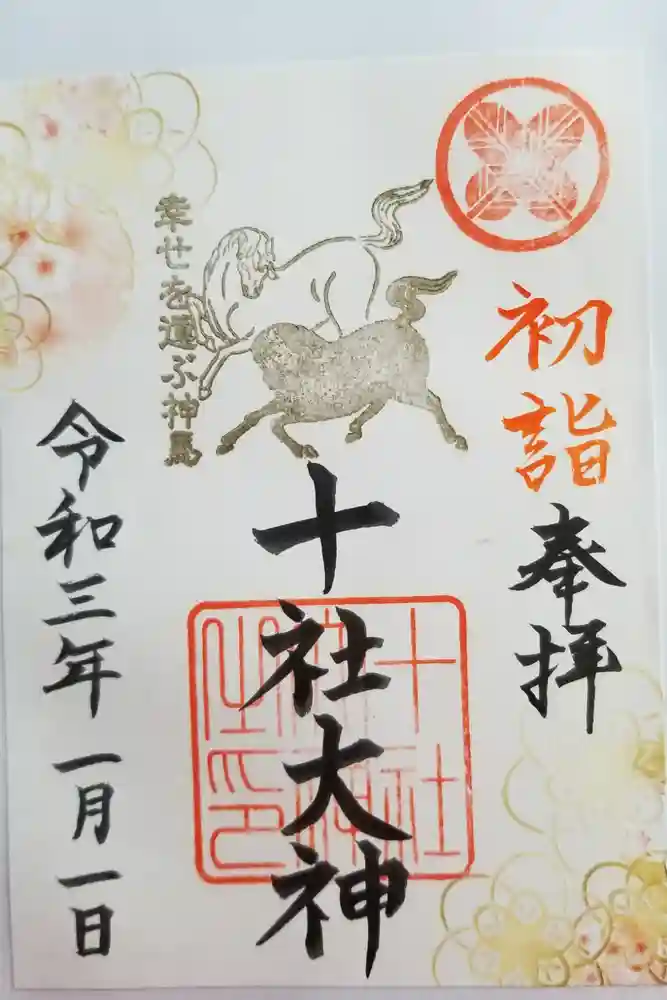 初詣
奉拝
十社大神
幸せを運ぶ神馬
令和三年 一月一日